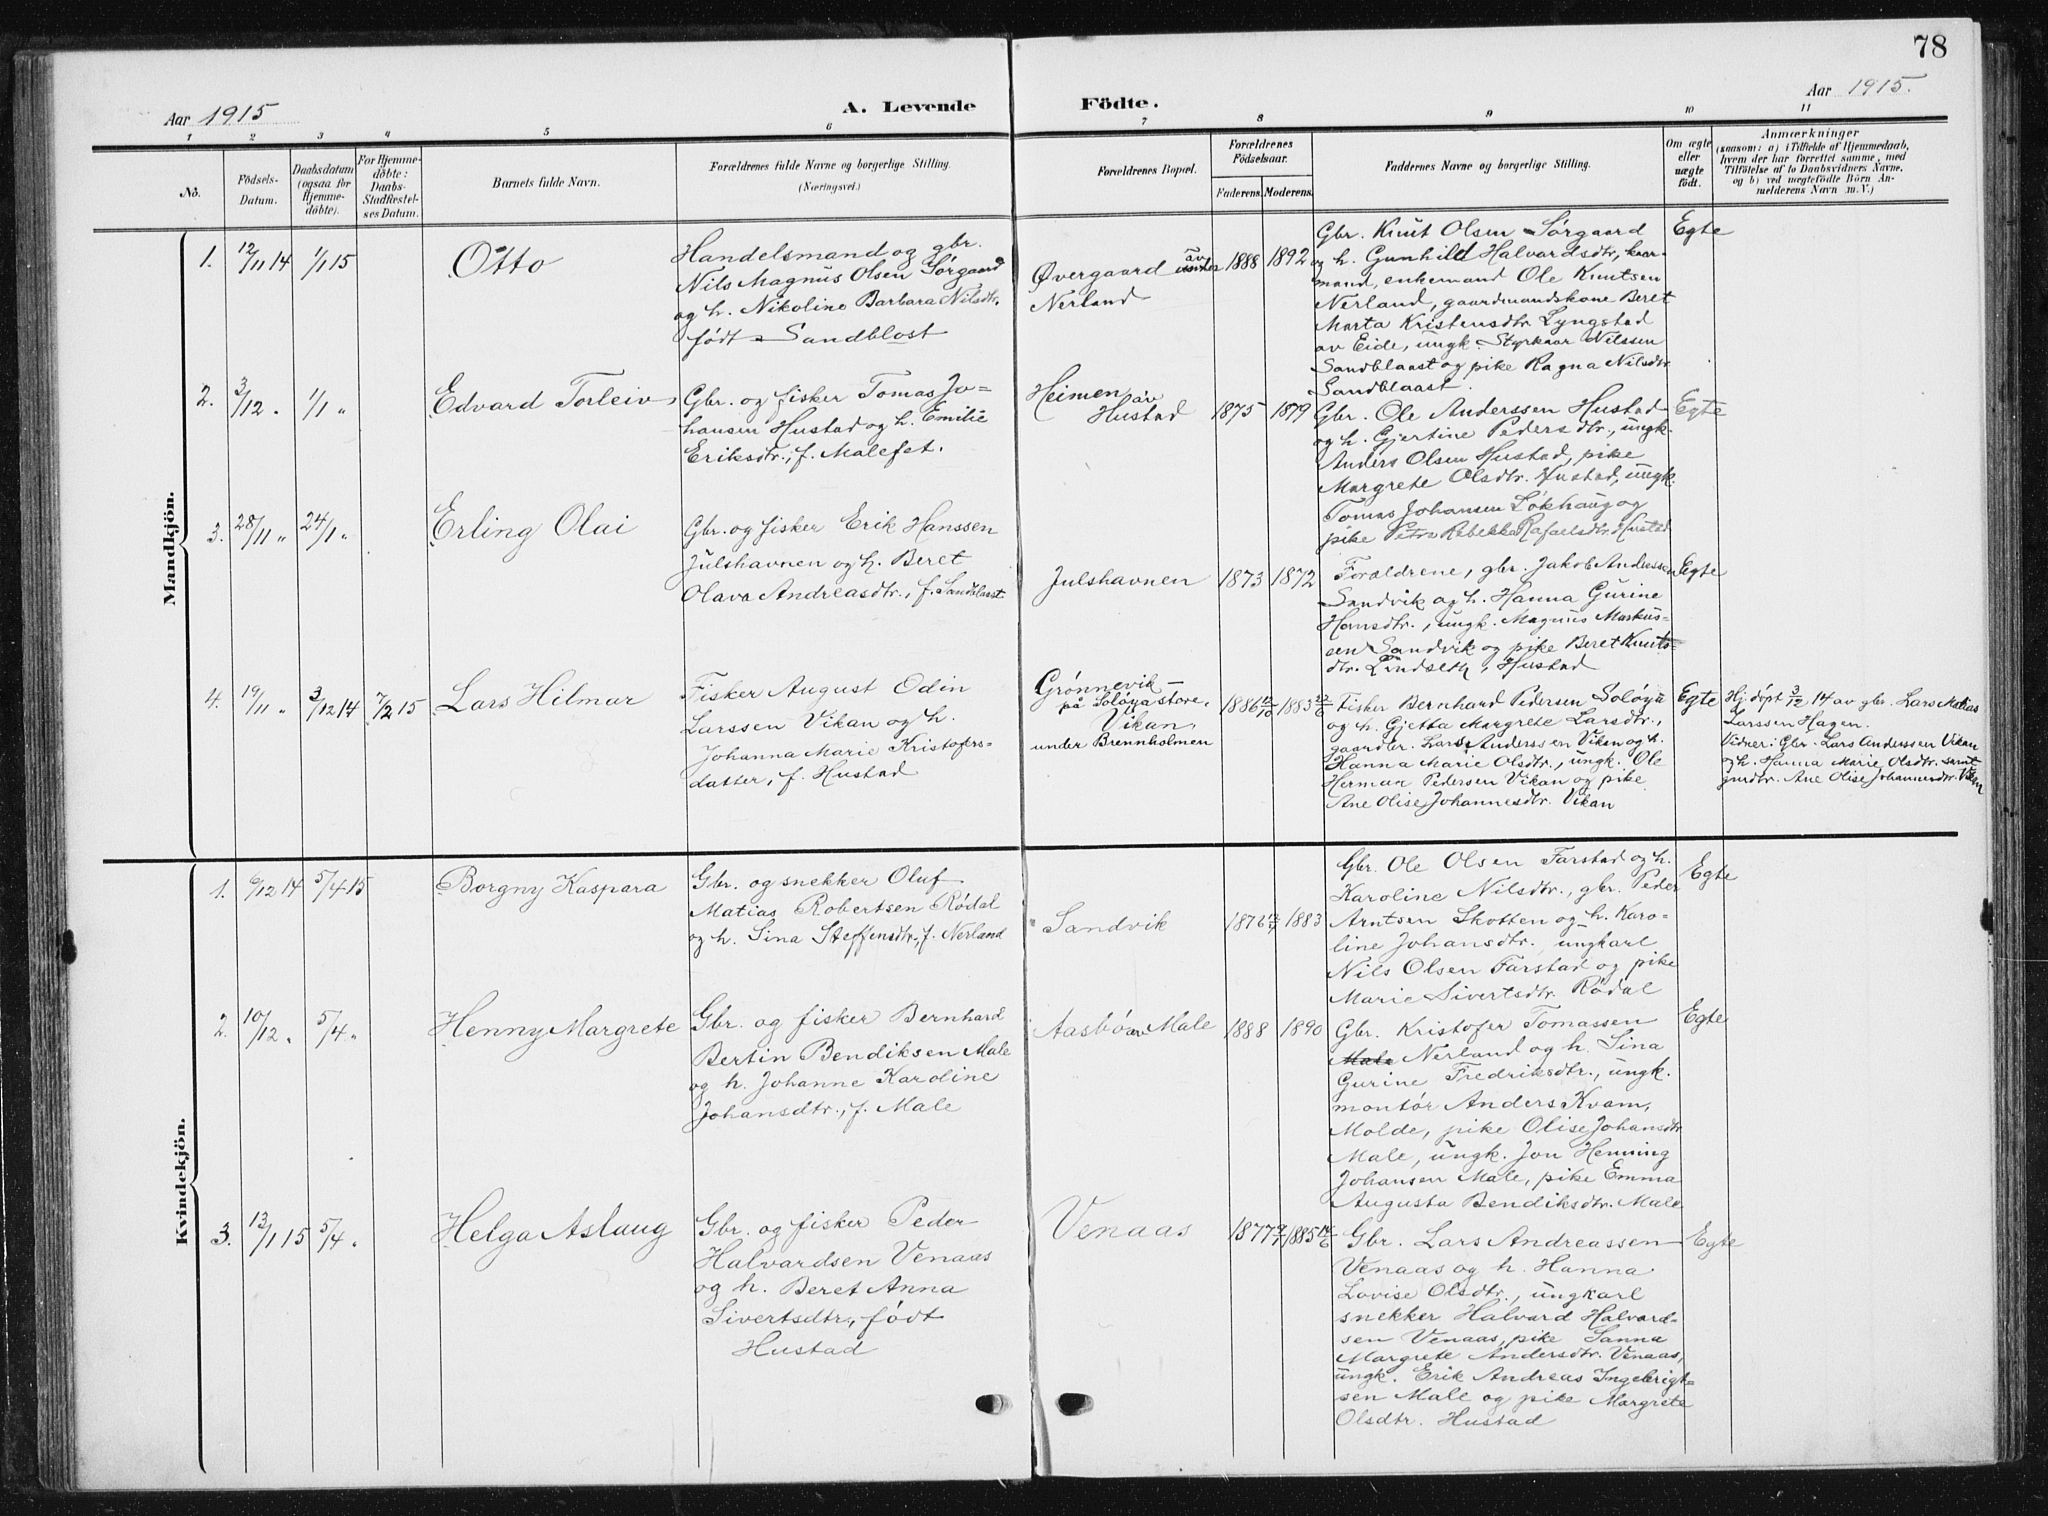 78
Aar 1915
A. Levende
Födte.
Aar 1915.
1 2 3 4 5 6 7 8 9 10 11
No.
Födsels-
Datum.
Daabsdatum
(ogsaa for
Hjemme-
döbte).
For Hjemme-
döbte:
Daabs-
Stadfæstel-
ses Datum.
Barnets fulde Navn.
Forældrenes fulde Navne og borgerlige Stilling.
(Næringsvei.)
Forældrenes Bopæl.
Forældrenes
Födselsaar.
Faderens. Moderens.
Faddernes Navne og borgerlige Stilling.
Om ægte
eller
uægte
födt.
Anmærkninger
(saasom: a) i Tilfælde af Hjemmedaab,
hvem der har forrettet samme, med
Tilföielse af to Daabsvidners Navne,
og b) ved uægtefödte Börn An-
melderens Navn m. V.)
Mandkjön.
1. 12/11 14 1/1 15
Otto
Handelsmand og gbr.
Nils Magnus Olsen Sørgaard
og h. Nikoline Barbara Nilsdtr.
født Sandblost
Øvergaard av
Nerland
1888 1892
Gbr. Knut Olsen Sørgaard
og h. Gunhild Halvardsdtr, kaar-
mand, enkemand Ole Knutsen
Nerland, gaardmandskone Beret
Marta Kristensdtr. Lyngstad
av Eide, ungk. Styrkaar Nilssen
Sandblaast og pike Ragna Nilsdtr
Sandblaast.
Egte
2. 3/12 " 1/1 "
Edvard Torleiv
Gbr. og fisker Tomas Jo=
hansen Hustad og h. Emilie
Eriksdtr., f. Malefet.
Heimen av
Hustad
1875 1879
Gbr. Ole Anderssen Hustad
og h. Gjertine Pedersdtr., ungk.
Anders Olsen Hustad, pike
Margrete Olsdtr. Hustad, ungk.
Tomas Johansen Løkhaug og
pike Petra Rebekka Rafaelsdtr. Hustad
Egte
3. 28/11 " 24/1 "
Erling Olai
Gbr. og fisker Erik Hanssen
Julshavnen og h. Beret
Olava Andreasdtr., f. Sandblaast
Julshavnen
1873 1872
Forældrene, gbr. Jakob Andressen
Sandvik og h. Hanna Gurine
Hansdtr., ungk. Magnus Markus=
sen Sandvik og pike Beret Knuts=
dtr. Lindseth, Hustad
Egte
4. 19/11 " 3/12 14 7/2 15
Lars Hilmar
Fisker August Odin
Larssen Vikan og h.
Johanna Marie Kristofers-
datter, f. Hustad
Grønnevik
på Soløya store,
Vikan,
under Brennholmen
1886 12/10 1883 22/6
Fisker Bernhard Pedersen Soløya
og h. Gjetta Margrete Larsdtr.,
gaardbr. Lars Anderssen Vikan og h.
Hanna Marie Olsdtr., ungk. Ole
Herman Pedersen Vikan og pike
Ane Olise Johannesdtr. Vikan
Egte
Hj.døpt 3/12 14 av gbr. Lars Matias
Larssen Hagen.
Vidner: Gbr. Lars Anderssen Vikan
og h. Hanna Marie Olsdtr. samt
gurdtr. Ane Olise Johannesdtr. Vikan
Kvindekjön.
1. 6/12 14 5/4 15
Borgny Kaspara
Gbr. og snekker Oluf
Matias Robertsen Rødal
og h. Sina Steffensdtr., f. Nerland
Sandvik
1876 1883
Gbr. Ole Olsen Farstad og h.
Karoline Nilsdtr., gbr. Peder
Arntsen Skotten og h. Karo-
line Johansdtr. ungkarl
Nils Olsen Farstad og pike
Marie Sivertsdtr. Rødal
Egte
2. 10/12 " 5/4 "
Henny Margrete
Gbr. og fisker Bernhard
Bertin Bendiksen Male
og h. Johanne Karoline
Johansdtr., f. Male
Aasbø av Male
1888 1890
Gbr. Kristofer Tomassen
Male Nerland og h. Sina
Gurine Fredriksdtr., ungk.
montör Anders Kvam,
Molde, pike Olise Johansdtr
Male, ungk. Jon Henning
Johansen Male, pike Emma
Augusta Bendiksdtr. Male
Egte
3. 13/1 15 5/4 "
Helga Aslaug
Gbr. og fisker Peder
Halvardsen Venaas
og h. Beret Anna
Sivertsdtr., født
Hustad
Venaas
1877 9/7 1885 14/6
Gbr. Lars Andreassen
Venaas og h. Hanna
Lovise Olsdtr., ungkarl
snekker Halvard Halvard-
sen Venaas, pike Sanna
Margrete Andersdtr. Venaas,
ungk. Erik Andreas Ingebrigt=
sen Male og pike Margrete
Olsdtr. Hustad
Egte